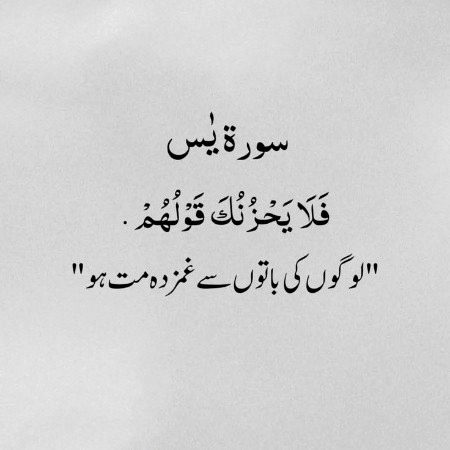 سورة یٰس
فَلَا يَحْزُنُكَ قَوْلُهُمْ .
"لوگوں کی باتوں سے غمزدہ مت ہو"